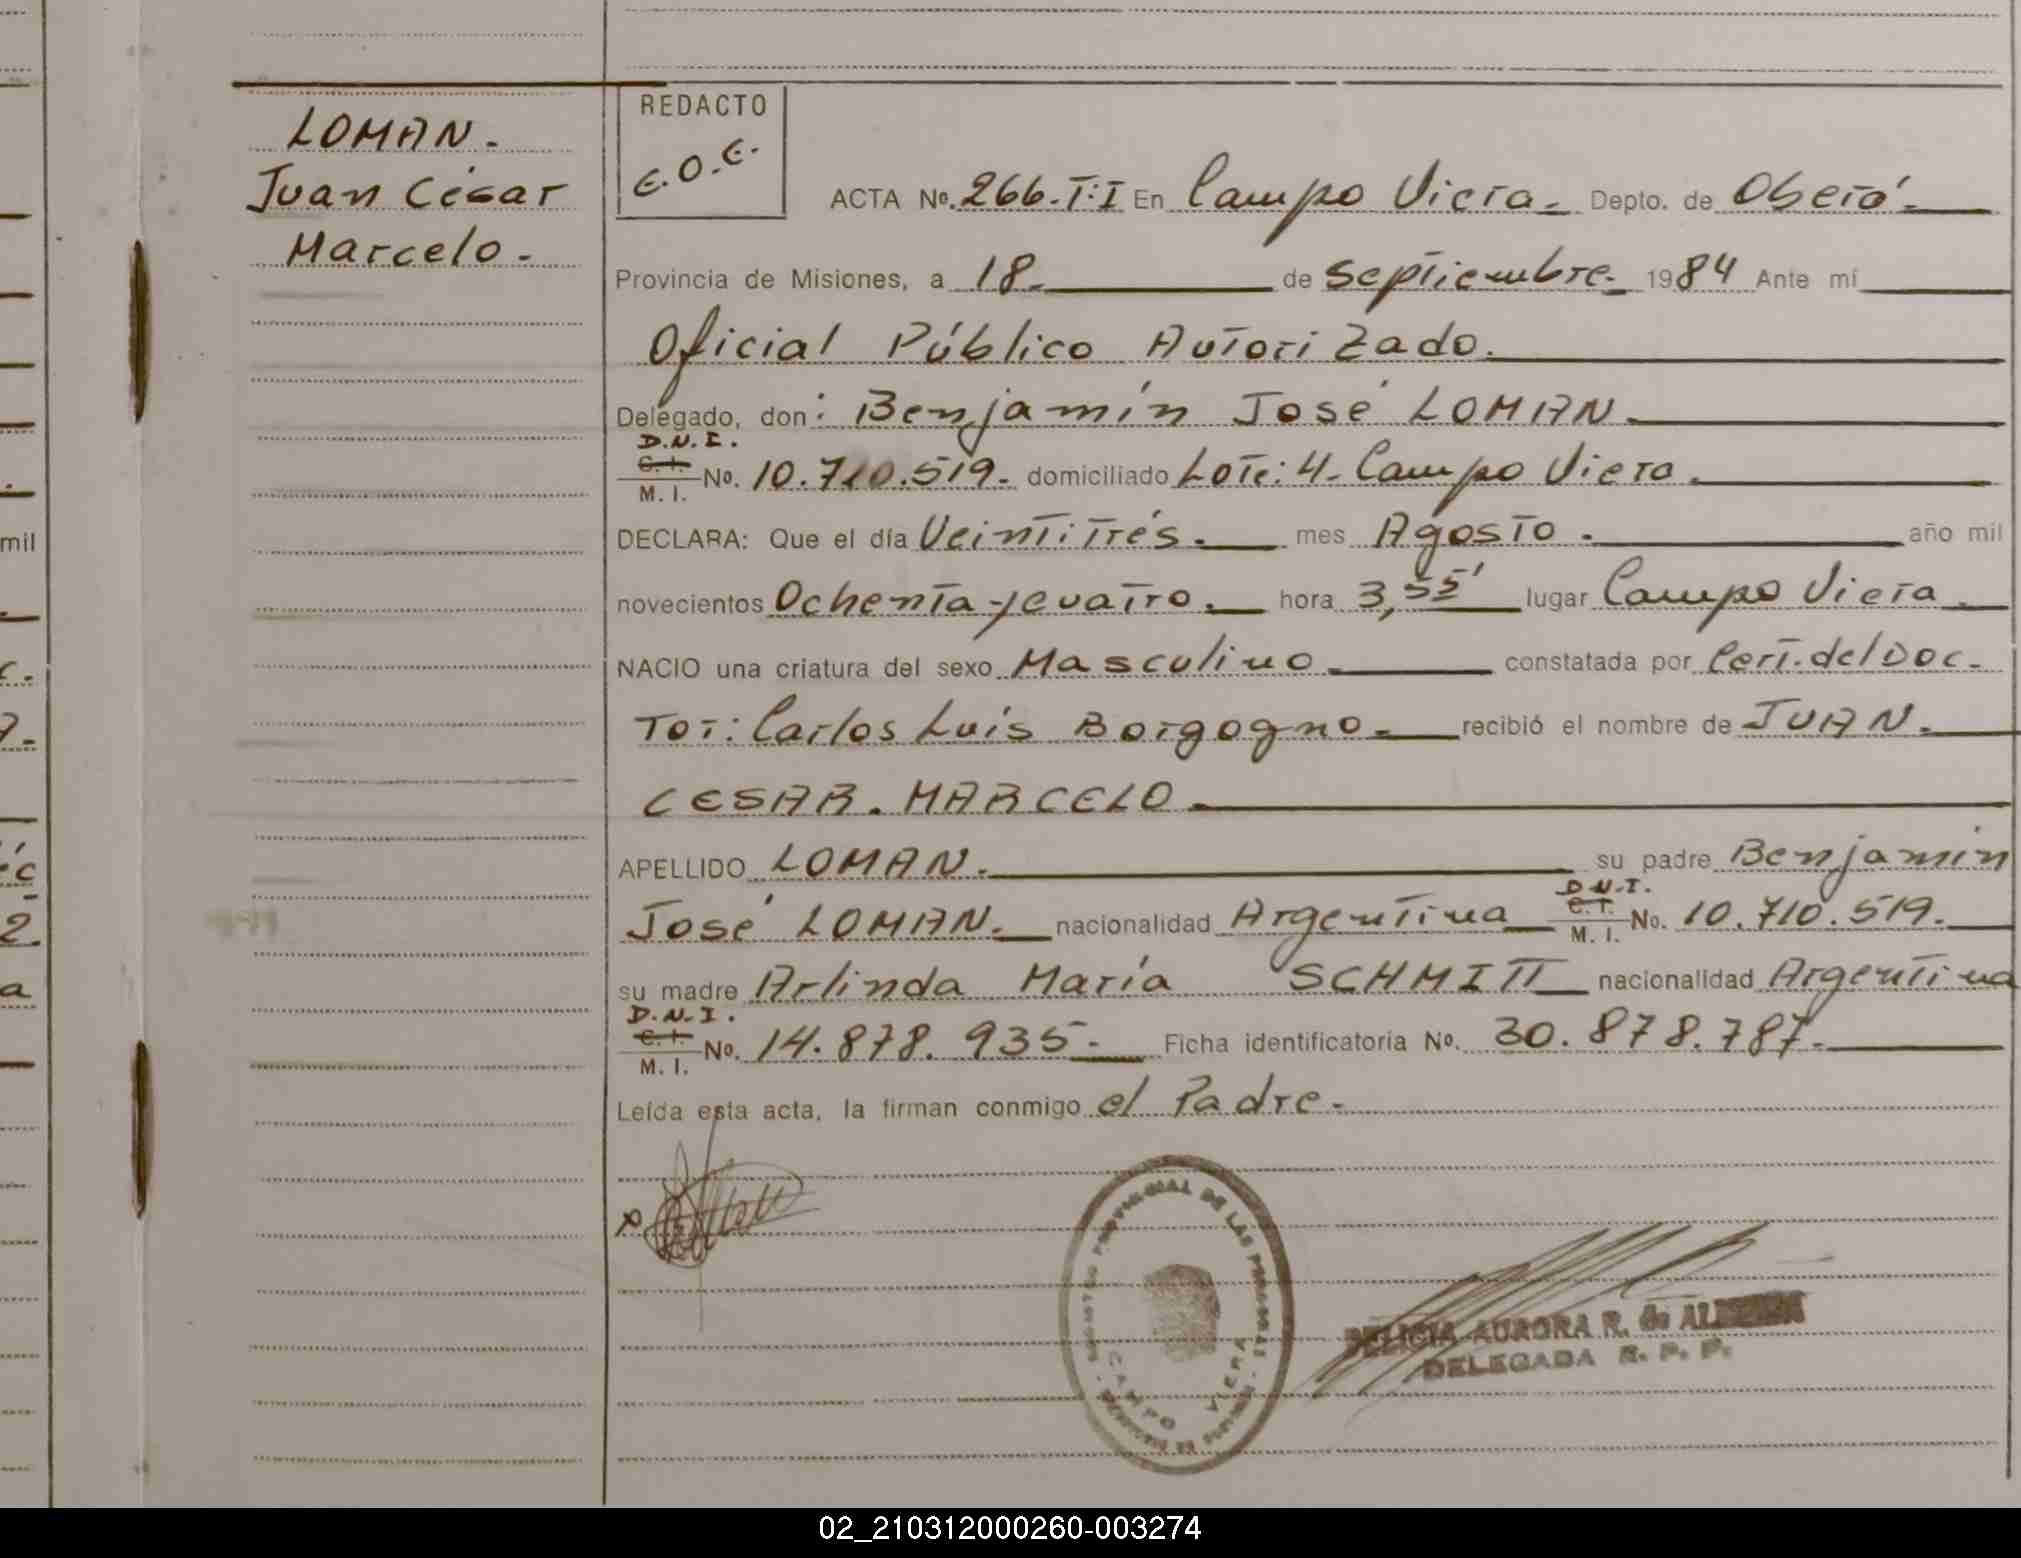 LOMAN.
Juan César
Marcelo.
REDACTO
E.O.E.
ACTA No. 266-T:I En Campo Viera. Depto. de Oberá.
Provincia de Misiones, a 18. de septiembre. 1984 Ante mí
Oficial Público Autorizado.
Delegado, don: Benjamín José LOMAN.
D.N.I.
C.I. No. 10.710.519. domiciliado Lote: 4- Campo Viera.
M. I.
DECLARA: Que el día Veintitrés. mes Agosto. año mil
novecientos Ochenta y cuatro. hora 3,55' lugar Campo Viera.
NACIO una criatura del sexo Masculino. constatada por Cert. del Doc-
tor: Carlos Luis Borgogno. recibió el nombre de JUAN.
CESAR. MARCELO.
APELLIDO LOMAN. su padre Benjamín
D.N.I.
José LOMAN. nacionalidad Argentina C.I. No. 10.710.519.
M. I.
su madre Arlinda María SCHMITT nacionalidad Argentina
D.N.I.
C.I. No. 14.878.935. Ficha identificatoria No. 30.878.787.
M. I.
Leída esta acta, la firman conmigo el Padre.
PROVINCIAL DE LAS PERSONAS
CAMPO VIERA
DELICIA AURORA R. de
DELEGADA R. P. P.
mil
c.
7.
éc
2.
a
02_210312000260-003274